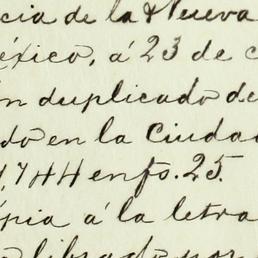 cia de la Nueva
éxico, á 23 de c
n duplicado de
do en la Ciudad
1,744 enfs. 25.
pia á la letra
librado por